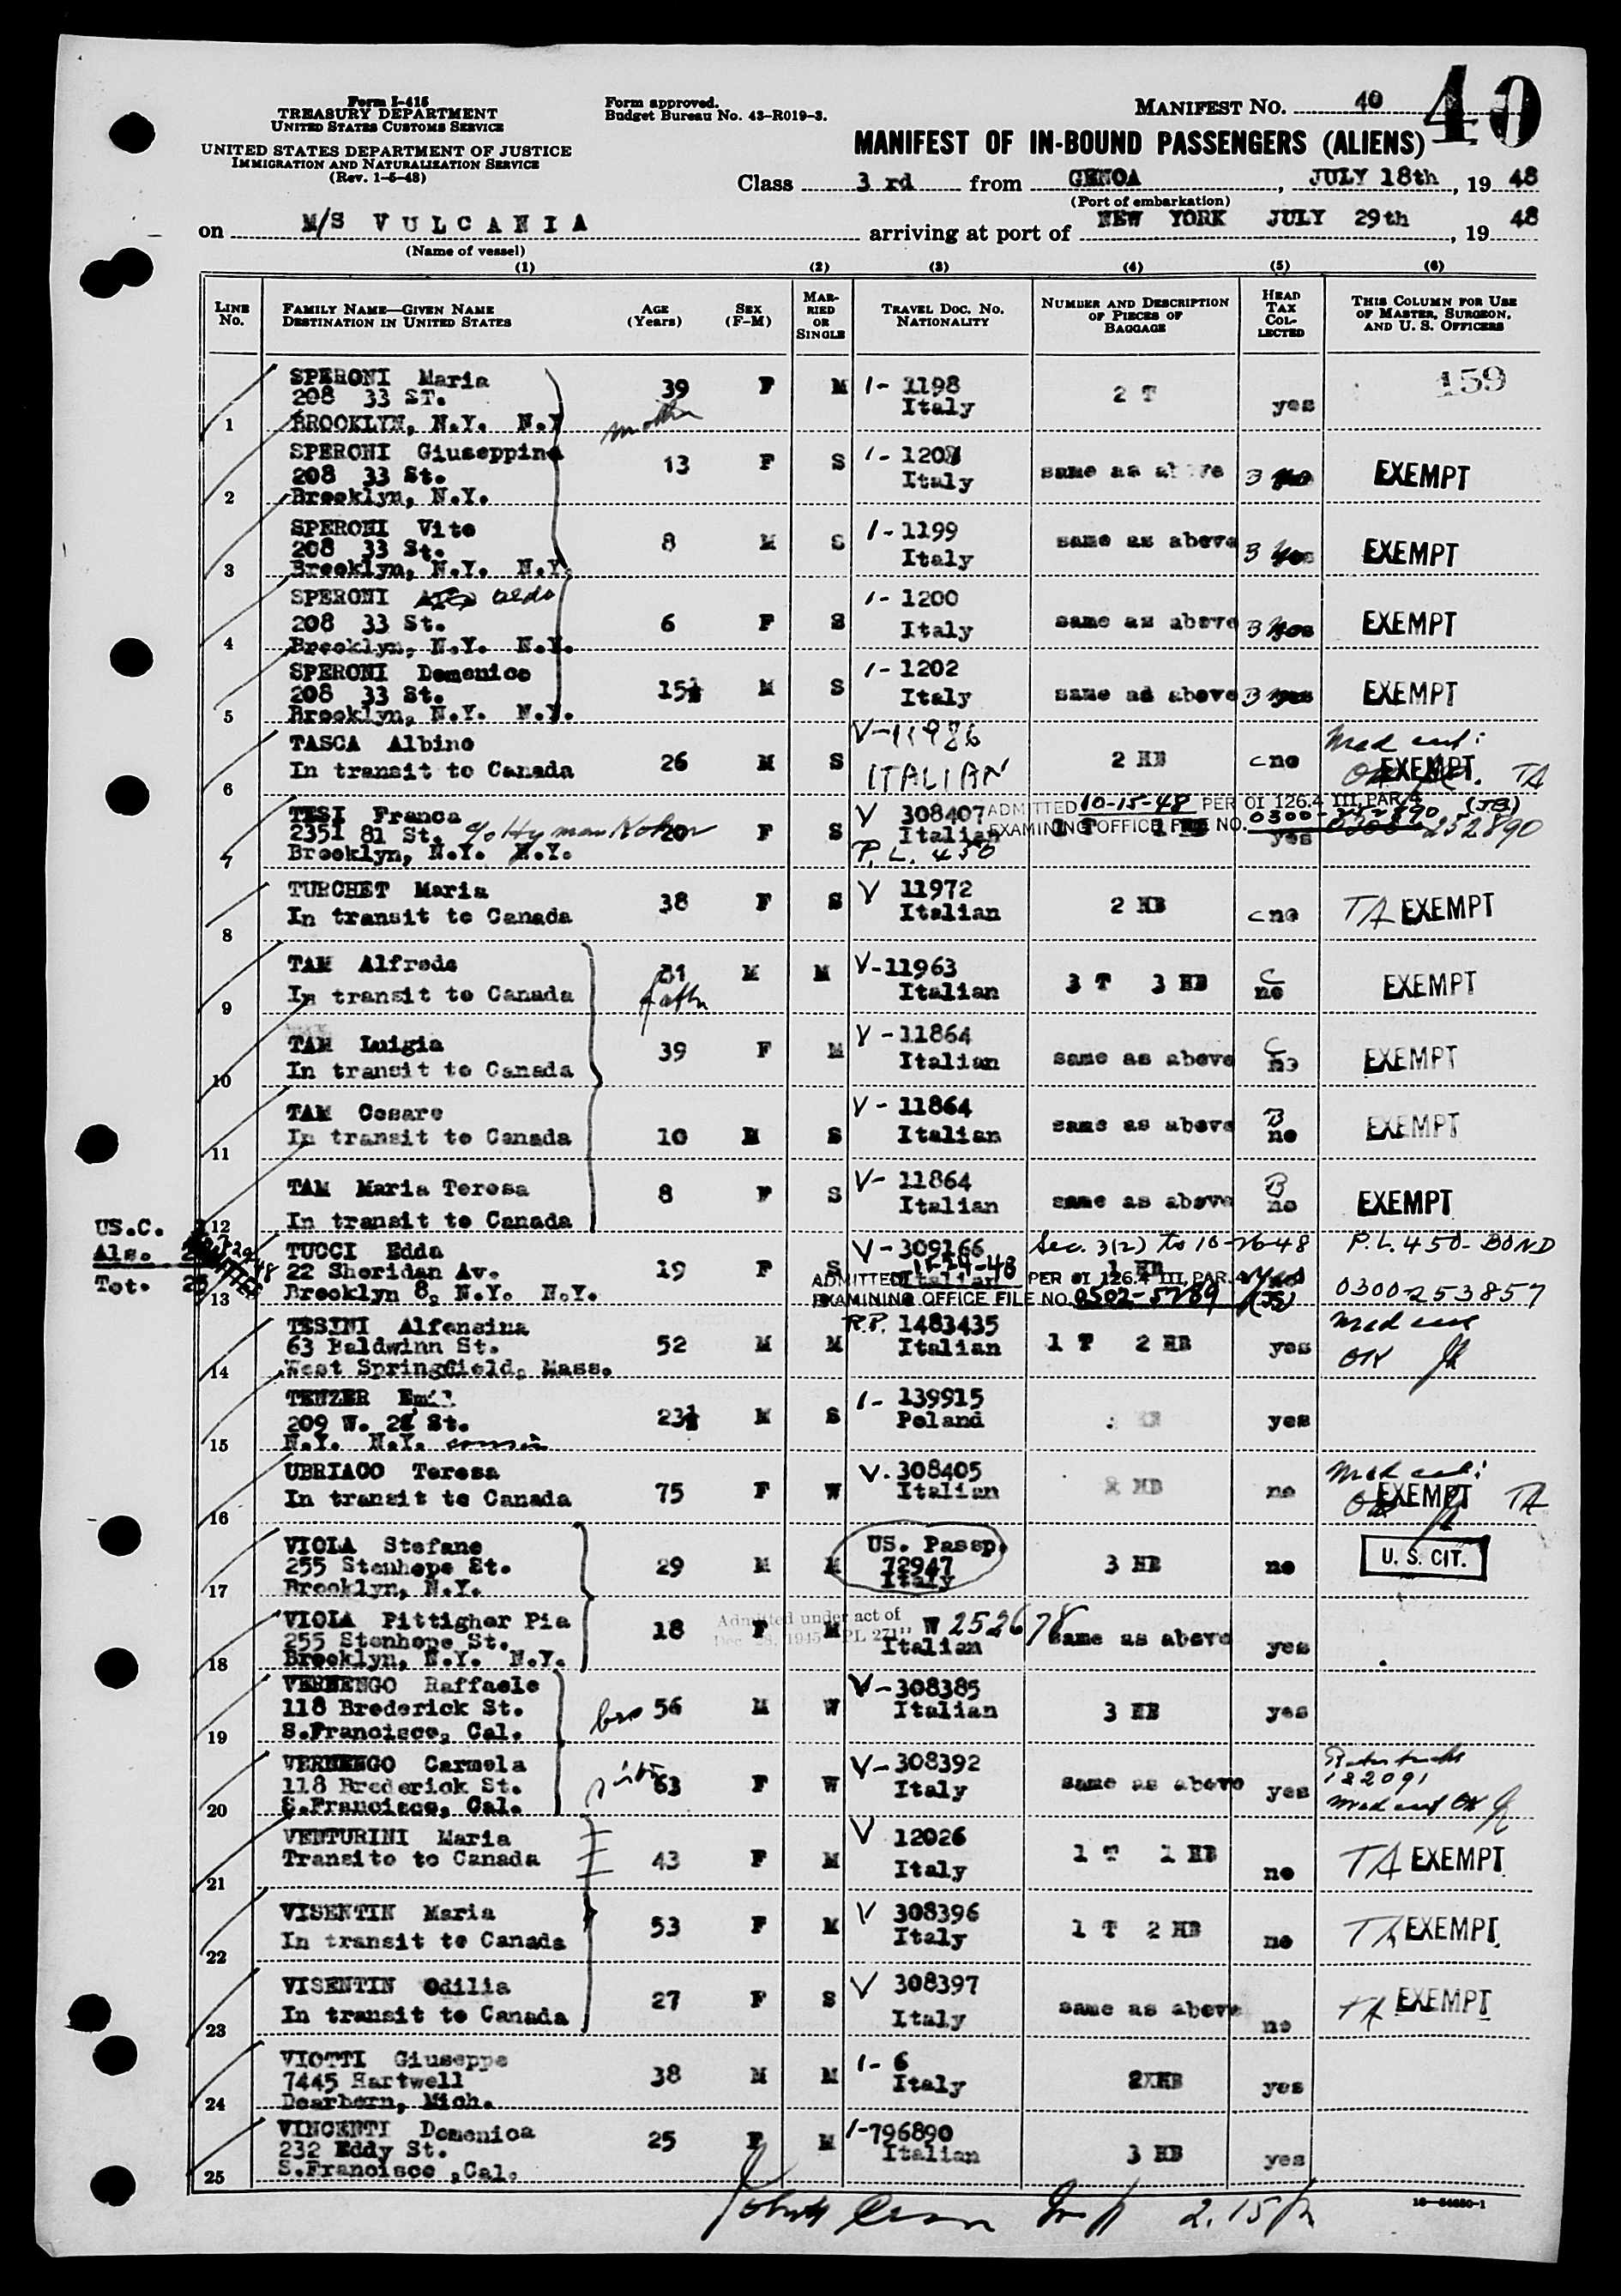 Form I-415
TREASURY DEPARTMENT
UNITED STATES CUSTOMS SERVICE
UNITED STATES DEPARTMENT OF JUSTICE
IMMIGRATION AND NATURALIZATION SERVICE
(Rev. 1-6-48)
Form approved.
Budget Bureau No. 43-R019-3.
MANIFEST NO. 40
40
MANIFEST OF IN-BOUND PASSENGERS (ALIENS)
Class 3 rd from GENOA, JULY 18th, 19 48
(Port of embarkation)
on M/S VULCANIA arriving at port of NEW YORK JULY 29th, 19 48
(Name of vessel)
(1) (2) (3) (4) (5) (6)
LINE No.
FAMILY NAME—GIVEN NAME
DESTINATION IN UNITED STATES
AGE (Years)
SEX (F-M)
MARRIED OR SINGLE
TRAVEL DOC. NO.
NATIONALITY
NUMBER AND DESCRIPTION OF PIECES OF BAGGAGE
HEAD TAX COLLECTED
THIS COLUMN FOR USE OF MASTER, SURGEON, AND U. S. OFFICERS
SPERONI Maria 39 F M 1- 1198 2 T yes 159
208 33 ST. mother Italy
1 BROOKLYN, N.Y. N.Y
SPERONI Giuseppina 13 F S 1- 1201 same as above 3 EXEMPT
208 33 St. Italy
2 Brooklyn, N.Y.
SPERONI Vito 8 M S 1- 1199 same as above 3 yes EXEMPT
208 33 St. Italy
3 Brooklyn, N.Y. N.Y.
SPERONI aldo 6 F S 1- 1200 same as above 3 yes EXEMPT
208 33 St. Italy
4 Brooklyn, N.Y. N.Y.
SPERONI Domenico 15½ M S 1- 1202 same as above 3 yes EXEMPT
208 33 St. Italy
5 Brooklyn, N.Y. N.Y.
TASCA Albino 26 M S V-11986 2 HB c no Med cert:
6 In transit to Canada ITALIAN OK EXEMPT. TA
TESI Franca 20 F S V 308407 ADMITTED 10-15-48 PER OI 126.4 III, PAR. 4 (JB)
2351 81 St. c/o Hyman Kohn Italian EXAMINING OFFICE FILE NO. yes 252890
7 Brooklyn, N.Y. N.Y. P.L. 450
TURCHET Maria 38 F S V 11972 2 HB c no TA EXEMPT
8 In transit to Canada Italian
TAM Alfredo 31 M M V-11963 3 T 3 HB c no EXEMPT
9 In transit to Canada father Italian
TAM Luigia 39 F M V-11864 same as above c no EXEMPT
10 In transit to Canada Italian
TAM Cesare 10 M S V- 11864 same as above B no EXEMPT
11 In transit to Canada Italian
TAM Maria Teresa 8 F S V- 11864 same as above B no EXEMPT
12 In transit to Canada Italian
US.C.
Als.
Tot. 25
TUCCI Edda 19 F S V-309166 Sec. 3(2) to 10-26-48 P.L. 450- BOND
22 Sheridan Av. Italian 1 HB
ADMITTED 11-24-48 PER OI 126.4 III, PAR. 4
13 Brooklyn 8, N.Y. N.Y. EXAMINING OFFICE FILE NO. 0502-5789 (JS) 0300-253857
TESINI Alfonsina 52 M M R.P. 1483435 1 T 2 HB yes Med cert
63 Baldwinn St. Italian OK
14 West Springfield, Mass.
TENZER Emil 23½ M S 1- 139915 yes
209 W. 28 St. Poland
15 N.Y. N.Y. cousin
UBRIACO Teresa 75 F W V. 308405 2 HB no Med cert:
16 In transit to Canada Italian OK EXEMPT TA
VIOLA Stefano 29 M M US. Passp. 3 HB no U. S. CIT.
255 Stenhope St. 72947
17 Brooklyn, N.Y. Italy
VIOLA Pittigher Pia 18 F M W 252678 same as above yes
255 Stenhope St. Admitted under act of Dec. 28, 1945 "PL 271" Italian
18 Brooklyn, N.Y. N.Y.
VERNENGO Raffaele bro 56 M W V-308385 3 HB yes
118 Brederick St. Italian
19 S.Francisco, Cal.
VERNENGO Carmela sister 63 F W V-308392 same as above yes
118 Brederick St. Italy 182091
20 S.Francisco, Cal. Med cert OK
VENTURINI Maria 43 F M V 12026 1 T 1 HB no TA EXEMPT
21 Transito to Canada Italy
VISENTIN Maria 53 F M V 308396 1 T 2 HB no TA EXEMPT
22 In transit to Canada Italy
VISENTIN Odilia 27 F S V 308397 same as above no TA EXEMPT
23 In transit to Canada Italy
VIOTTI Giuseppe 38 M M 1- 6 2XHB yes
7445 Hartwell Italy
24 Dearborn, Mich.
VINCENTI Domenica 25 F M 1-796890 3 HB yes
232 Eddy St. Italian
25 S.Francisco ,Cal.
2.15
16-54650-1